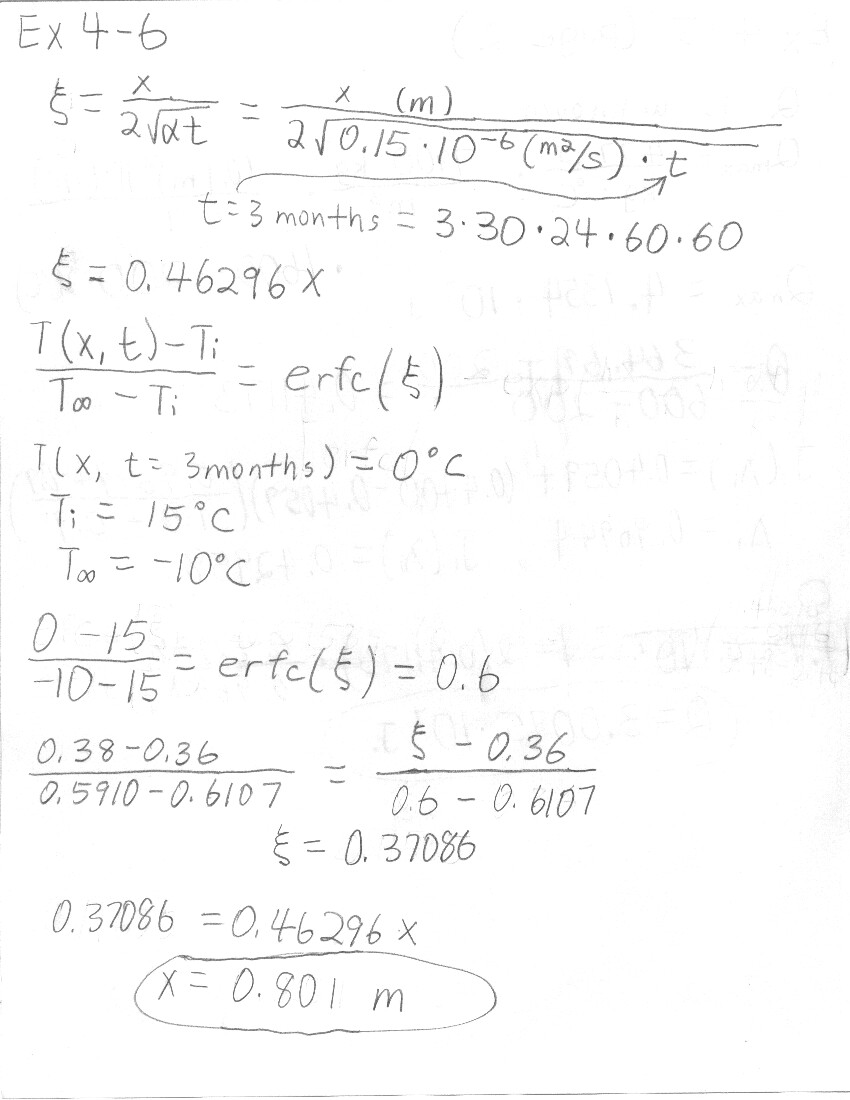 Ex 4-6
ξ = x / 2√αt = x (m) / 2√0.15·10⁻⁶ (m²/s) · t
t = 3 months = 3·30·24·60·60
ξ = 0.46296 x
T(x, t) - Ti / T∞ - Ti = erfc(ξ)
T(x, t = 3months) = 0°C
Ti = 15°C
T∞ = -10°C
0 - 15 / -10 - 15 = erfc(ξ) = 0.6
0.38 - 0.36 / 0.5910 - 0.6107 = ξ - 0.36 / 0.6 - 0.6107
ξ = 0.37086
0.37086 = 0.46296 x
x = 0.801 m